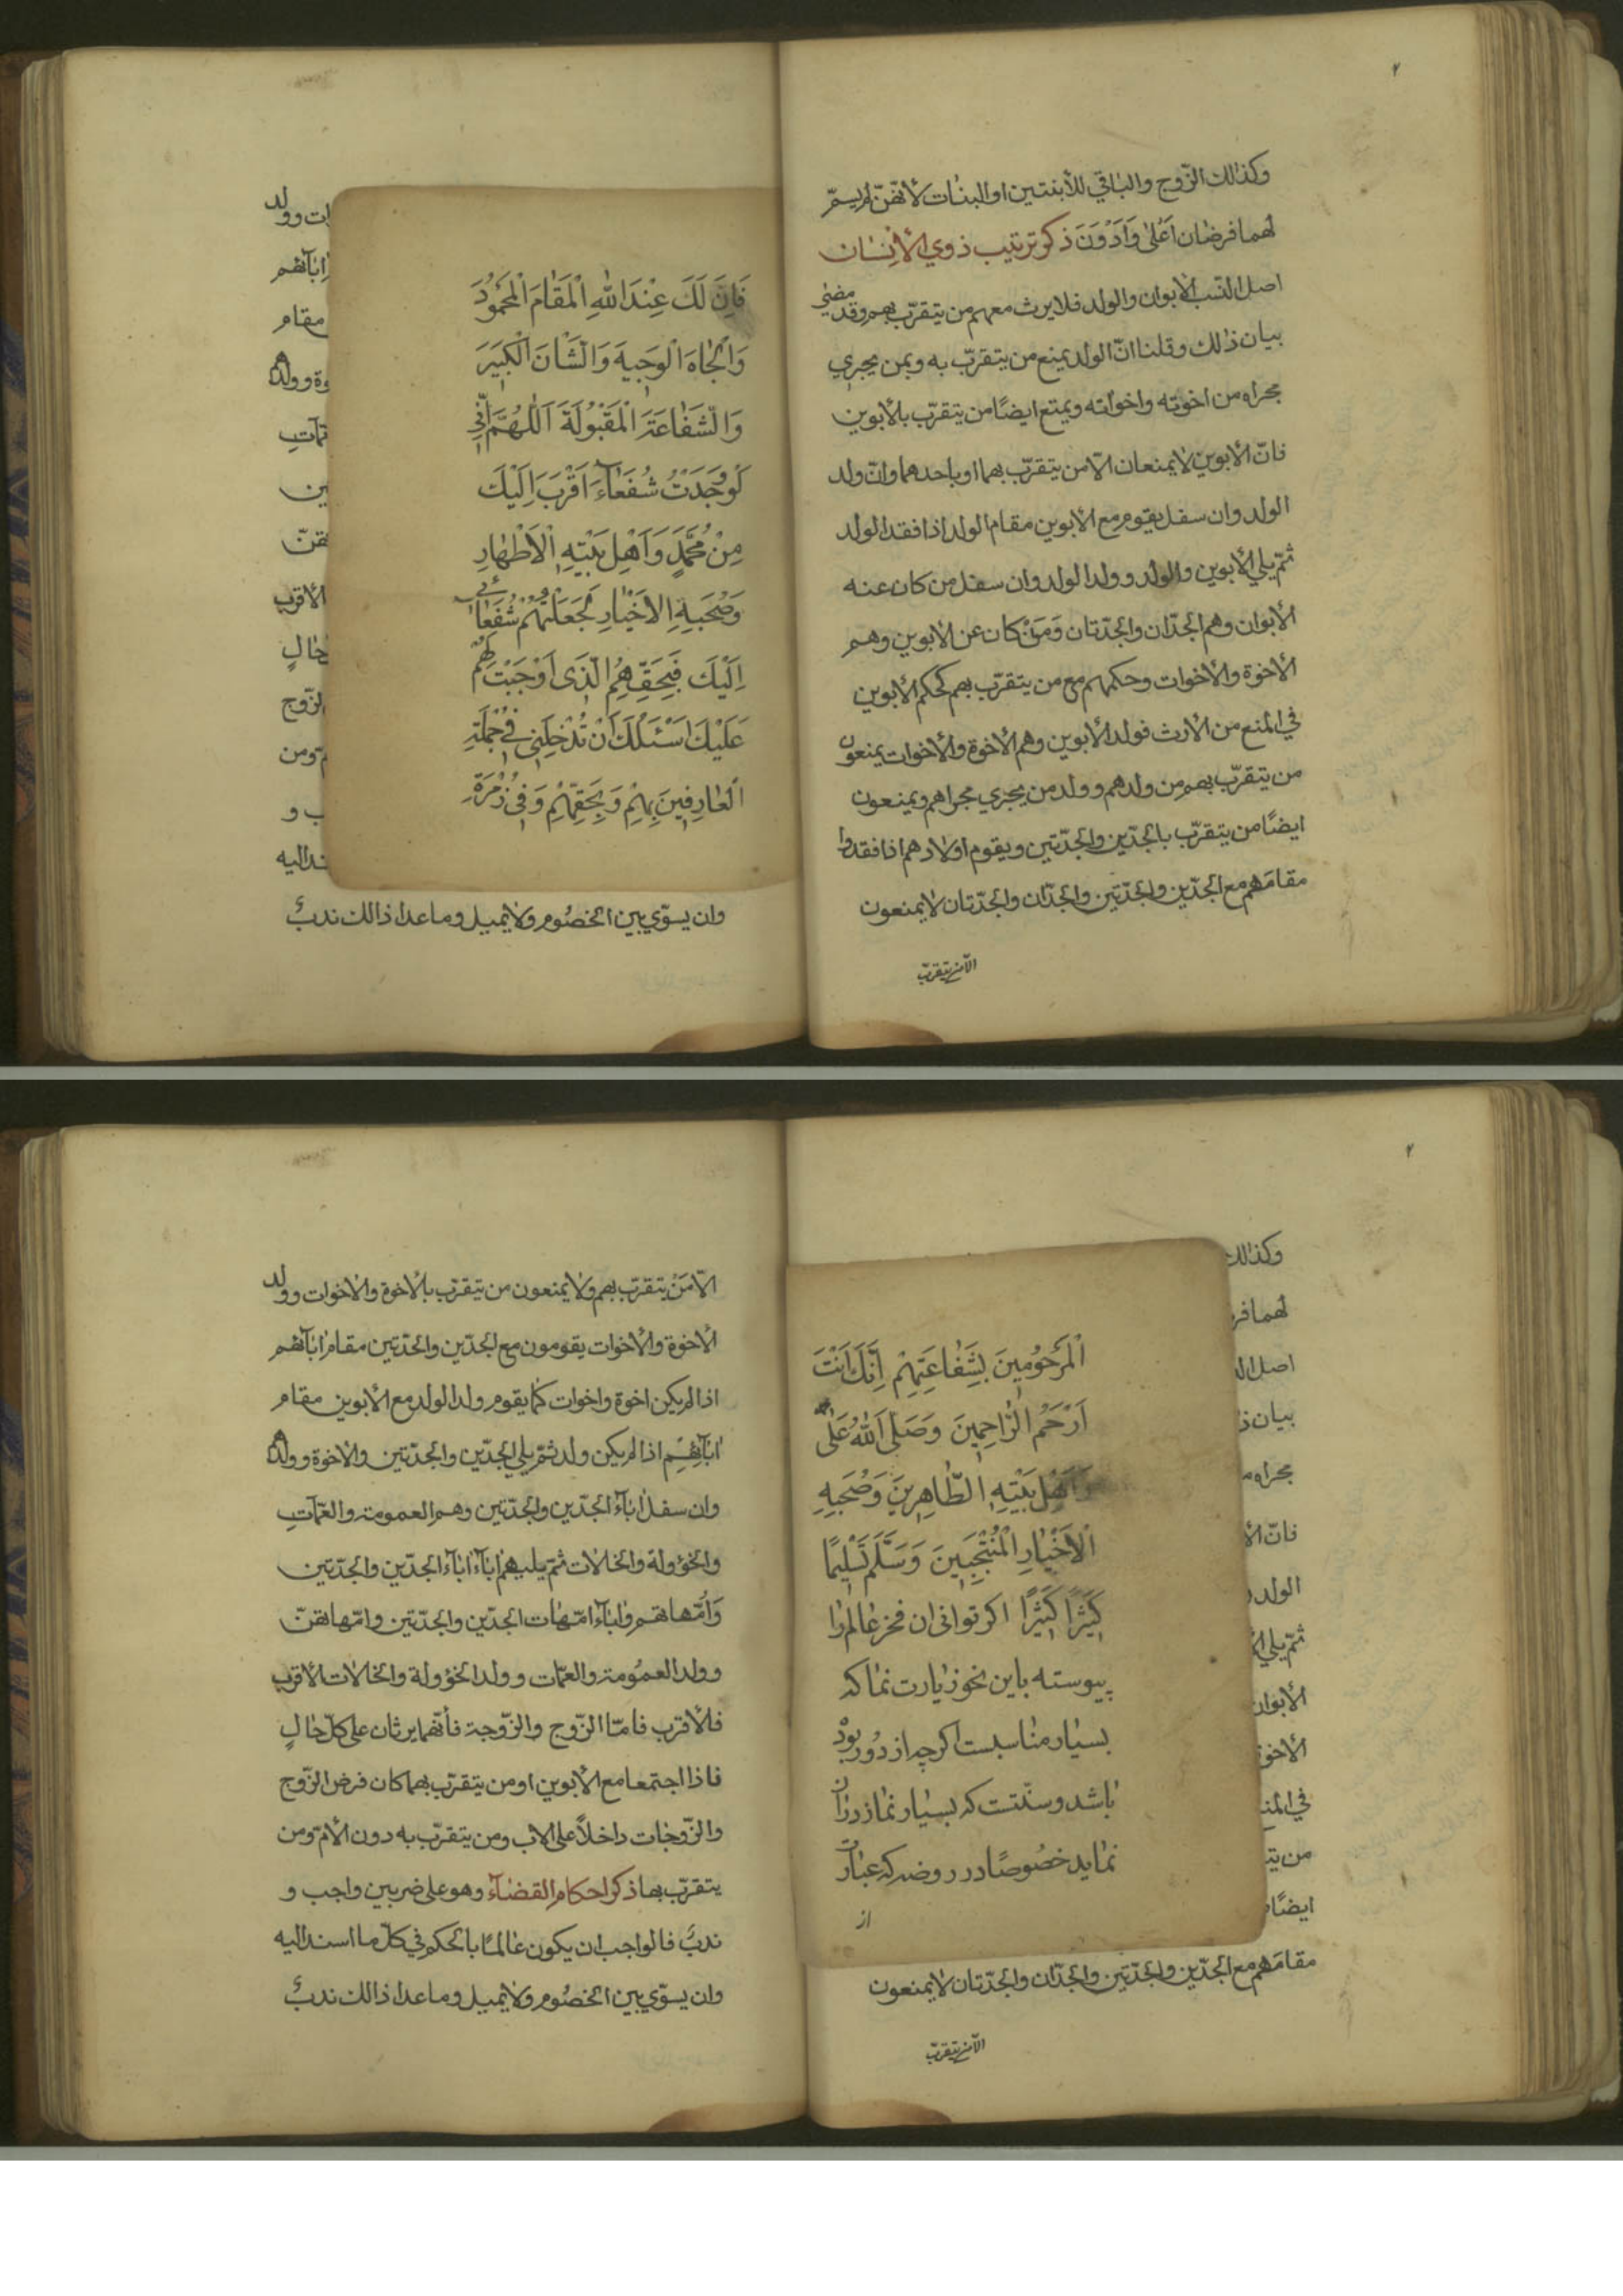 ٢
وكذالك الزّوج والباقي للأبنتين او البنات لأنّهنّ لم يسمّ
لهما فرضان اَعْلىٰ وَاَدْوَنَ ذكر ترتيب ذوي الأنسان
اصل النّسب الأبوان والولد فلا يرث معهم من يتقرّب بهم وقد مضىٰ
بيان ذالك وقلنا انّ الولد يمنع من يتقرّب به وبمن يجري
مجراه من اخوته واخواته ويمنع ايضًا من يتقرّب بالأبوين
فانّ الأبوين لا يمنعان الّا من يتقرّب بهما او باحدهما وانّ ولد
الولد وان سفل يقوم مع الأبوين مقام الولد اذا فقد الولد
ثمّ يلي الأبوين والولد وولد الولد وان سفل من كان عنه
الأبوان وهم الجدّان والجدّتان وَمَنْ كان عن الأبوين وهم
الأخوة والأخوات وحكمهم مع من يتقرّب بهم كحكم الأبوين
في المنع من الأرث فولد الأبوين وهم الأخوة والأخوات يمنعون
من يتقرّب بهم من ولدهم وولد من يجري مجراهم ويمنعون
ايضًا من يتقرّب بالجدّين والجدّتين ويقوم اولادهم اذا فقدوا
مقامَهم مع الجدّين والجدّتين والجدّان والجدّتان لا يمنعون
الّا من يتقرّب
فَاِنَّ لَكَ عِنْدَ اللّٰهِ الْمَقَامَ الْمَحْمُوْدَ
وَالْجَاهَ الْوَجِيهَ وَالشَّانَ الْكَبِيرَ
وَالشَّفَاعَةَ الْمَقْبُولَةَ اَللّٰهُمَّ اِنِّي
لَوْ وَجَدْتُ شُفَعَاءَ اَقْرَبَ اِلَيْكَ
مِنْ مُحَمَّدٍ وَاَهْلِ بَيْتِهِ الْاَطْهَارِ
وَصُحَبِهِ الاَخْيَارِ لَجَعَلْتُهُمْ شُفَعَائي
اِلَيْكَ فَبِحَقِّهِمُ الَّذى اَوْجَبْتَ لَهُمْ
عَلَيْكَ اَسْئَلُكَ اَنْ تُدْخِلَنِى فى جُمْلَةِ
الْعَارِفِينَ بِهِمْ وَبِحَقِّهِمْ وَفى زُمْرَةِ
ات وولد
اٰبآئهم
مقام
وة وولدا
مّاتِ
ين
هنّ
الأقرب
حالٍ
لزّوج
مّ ومن
ب و
ند اليه
وان يسوّي بين الخصُوم ولا يميل وما عدا ذالك ندبٌ
٢
وكذالك
لهما فر
اصل الن
بيان ذ
مجراه م
فانّ الأ
الولد و
ثمّ يلي الأ
الأبوان
الأخوة
في المنع
من يت
ايضًا م
مقامَهم مع الجدّين والجدّتين والجدّان والجدّتان لا يمنعون
الّا من يتقرّب
الْمَرْحُومِينَ بِشَفَاعَتِهِمْ اِنَّكَ اَنْتَ
اَرْحَمُ الرَّاحِمِينَ وَصَلَّى اللّٰهُ عَلٰى محمد
وَاَهْلِ بَيْتِهِ الطَّاهِرِينَ وَصُحَبِهِ
الْاَخْيَارِ الْمُنْتَجَبِينَ وَسَلَّمَ تَسْلِيمًا
كَثِيرًا كَثِيرًا اكر توانى ان فخر عالم را
پيوسته باين نحو زيارت نما كه
بسيار مناسبست اكر چه از دُور بودْ
باشد وسنّتست كه بسيار نماز دران
نمايد خصُوصًا در روضه كه عبارت
از
الّا مَنْ يتقرّب بهم ولا يمنعون من يتقرّب بالأخوة والأخوات وولد
الأخوة والأخوات يقومون مع الجدّين والجدّتين مقام اٰبآئهم
اذا لم يكن اخوة واخوات كما يقوم ولد الولد مع الأبوين مقام
اٰبآئِهِم اذا لم يكن ولد ثمّ يلي الجدّين والجدّتين والاخوة وولدا
وان سفل اٰباءُ الجدّين والجدّتين وهم العمومة والعمّاتِ
والخؤولة والخالات ثمّ يليهم اٰباءُ اٰباء الجدّين والجدّتين
وَاُمّهاتهم واٰباء امّهات الجدّين والجدّتين وامّهاتهنّ
وولد العمُومة والعمّات وولد الخؤولة والخالات الأقرب
فلأقرب فامّا الزّوج والزّوجة فأنّهما يرثان على كلّ حالٍ
فاذا اجتمعا مع الأبوين او من يتقرّب بهما كان فرض الزّوج
والزّوجات داخلاً على الاب ومن يتقرّب به دون الأمّ ومن
يتقرّب بها ذكر احكام القضآء وهو على ضربين واجب و
ندبٌ فالواجب ان يكون عالمًا بالحكم في كلّ ما اسند اليه
وان يسوّي بين الخصُوم ولا يميل وما عدا ذالك ندبٌ